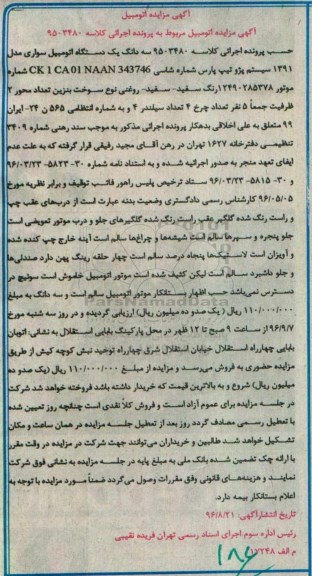 آگهی مزایده اتومبیل
آگهی مزایده اتومبیل مربوط به پرونده اجرائی کلاسه ۹۵۰۳۴۸۰
حسب پرونده اجرائی کلاسه ۹۵۰۳۴۸۰ سه دانگ یک دستگاه اتومبیل سواری مدل
۱۳۹۱ سیستم پژو تیپ پارس شماره شاسی CK 1 CA 01 NAAN 343746 شماره
موتور ۱۲۴۹۰۲۸۵۳۷۸ رنگ سفید- سفید- روغنی نوع سوخت بنزین تعداد محور ۲
ظرفیت جمعاً ۵ نفر تعداد چرخ ۴ تعداد سیلندر ۴ و به شماره انتظامی ۵۶۵ ن ۲۴- ایران
۹۹ متعلق به علی اخلاقی بدهکار پرونده اجرائی مذکور به موجب سند رهنی شماره ۳۴۰۹
تنظیمی دفترخانه ۱۶۲۷ تهران در رهن آقای مجید رفیقی قرار گرفته که به علت عدم
ایفای تعهد منجر به صدور اجرائیه شده و به استناد نامه شماره ۳۰- ۵۸۲۳- ۹۶/۰۳/۲۳
و ۳۰- ۵۸۱۵- ۹۶/۰۳/۲۳ ستاد ترخیص پلیس راهور فاتب توقیف و برابر نظریه مورخ
۹۶/۰۵/۰۵ کارشناس رسمی دادگستری وضعیت بدنه عبارت است از درب‌های عقب چپ
و راست رنگ شده گلگیر عقب راست رنگ شده گلگیرهای جلو و درب موتور تعویضی است
جلو پنجره و سپرها سالم است شیشه‌ها و چراغها سالم است آینه خارج چپ کنده شده
و آویزان است لاستیک‌ها پنجاه درصد سالم است چهار حلقه رینگ پهن دارد صندلی‌ها
و جلو داشبرد سالم است لیکن کثیف شده است موتور اتومبیل خاموش است سوئیچ در
دسترس نمی‌باشد حسب اظهار بستانکار موتور اتومبیل سالم است و سه دانگ به مبلغ
۱۱۰/۰۰۰/۰۰۰ ریال (یک صد و ده میلیون ریال) ارزیابی گردیده و در روز سه شنبه مورخ
۹۶/۹/۷ از ساعت ۹ صبح تا ۱۲ ظهر در محل پارکینگ بابایی استقلال به نشانی: اتوبان
بابایی چهارراه استقلال خیابان استقلال شرق چهارراه توحید نبش کوچه کیش از طریق
مزایده حضوری به فروش می‌رسد و مزایده از مبلغ ۱۱۰/۰۰۰/۰۰۰ ریال (یک صد و ده
میلیون ریال) شروع و به بالاترین قیمت که خریدار داشته باشد فروخته خواهد شد شرکت
در جلسه مزایده برای عموم آزاد است و فروش کلاً نقدی است چنانچه روز تعیین شده
با تعطیل رسمی مصادف گردد روز بعد از تعطیل جلسه مزایده در همان ساعت و مکان
تشکیل خواهد شد طالبین و خریداران می‌توانند جهت شرکت در مزایده در وقت مقرر
با ارائه چک تضمین شده بانک ملی به مبلغ پایه در جلسه مزایده به نشانی فوق شرکت
نمایند و هزینه‌های قانونی وفق مقررات وصول می‌گردد ضمناً مورد مزایده با توجه به
اعلام بستانکار بیمه دارد.
تاریخ انتشار آگهی: ۹۶/۸/۲۱
رئیس اداره سوم اجرای اسناد رسمی تهران فریده نقیبی
م الف ۱۷۲۴۸
ParsNamadData